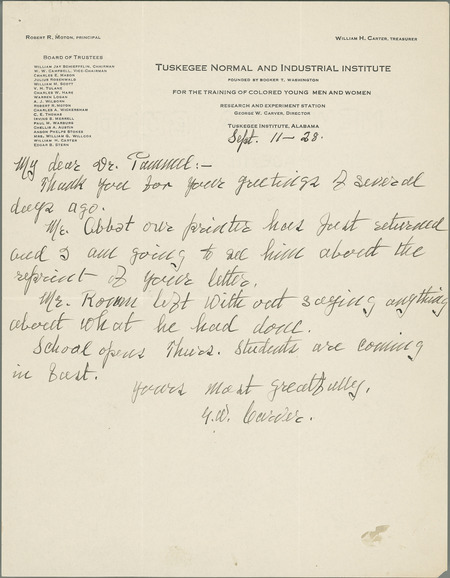 ROBERT R. MOTON, PRINCIPAL
WILLIAM H. CARTER, TREASURER
BOARD OF TRUSTEES
WILLIAM JAY SCHIEFFELIN, CHAIRMAN
W. W. CAMPBELL, VICE-CHAIRMAN
CHARLES E. MASON
JULIUS ROSENWALD
WILLIAM M. SCOTT
V. H. TULANE
CHARLES W. HARE
WARREN LOGAN
A. J. WILBORN
ROBERT R. MOTON
CHARLES A. WICKERSHAM
C. E. THOMAS
IRVING S. MERRELL
PAUL M. WARBURG
CHELLIS A. AUSTIN
ANSON PHELPS STOKES
MRS. WILLIAM G. WILLCOX
WILLIAM H. CARTER
EDGAR B. STERN
TUSKEGEE NORMAL AND INDUSTRIAL INSTITUTE
FOUNDED BY BOOKER T. WASHINGTON
FOR THE TRAINING OF COLORED YOUNG MEN AND WOMEN
RESEARCH AND EXPERIMENT STATION
GEORGE W. CARVER, DIRECTOR
TUSKEGEE INSTITUTE, ALABAMA
Sept. 11-28.
My dear Dr. :-
Thank you for your greetings of several
days ago.
Mr. Abbot our printer has Just returned
and I am going to see him about the
reprint of your letter.
Mr. left with out saying anything
about what he had done.
School opens Thurs. Students are coming
in East.
Yours most greatfully,
G.W. Carver.